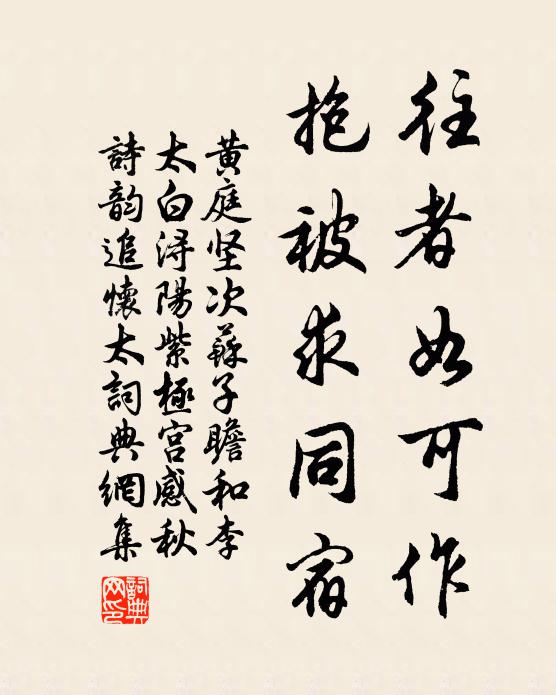 往者如可作
抱被求同宿
黄庭坚次蘇子瞻和李
太白浔陽紫極宫感秋
詩韵追懷太詞典網集
詞典
网印